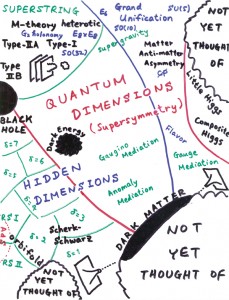 SUPERSTRING
M-theory heterotic
G2 Holonomy E8×E8
Type-IIA Type-I
SO(32)
Type
IIB
E6 Grand SU(5)
Unification
SO(10)
supergravity
Matter
Anti-matter
Asymmetry
CP
NOT
YET
THOUGHT
OF
Little Higgs
Composite
Higgs
QUANTUM
DIMENSIONS
(Supersymmetry)
Flavor
BLACK
HOLE
Dark Energy
Gaugino
Mediation
Gauge
Mediation
Anomaly
Mediation
δ=7
δ=6
δ=5
δ=4
δ=3
δ=2
δ=1
HIDDEN
DIMENSIONS
DARK MATTER
RS I
RS II
Orbifold
Scherk-
Schwarz
NOT
YET
THOUGHT OF
NOT
YET
THOUGHT OF